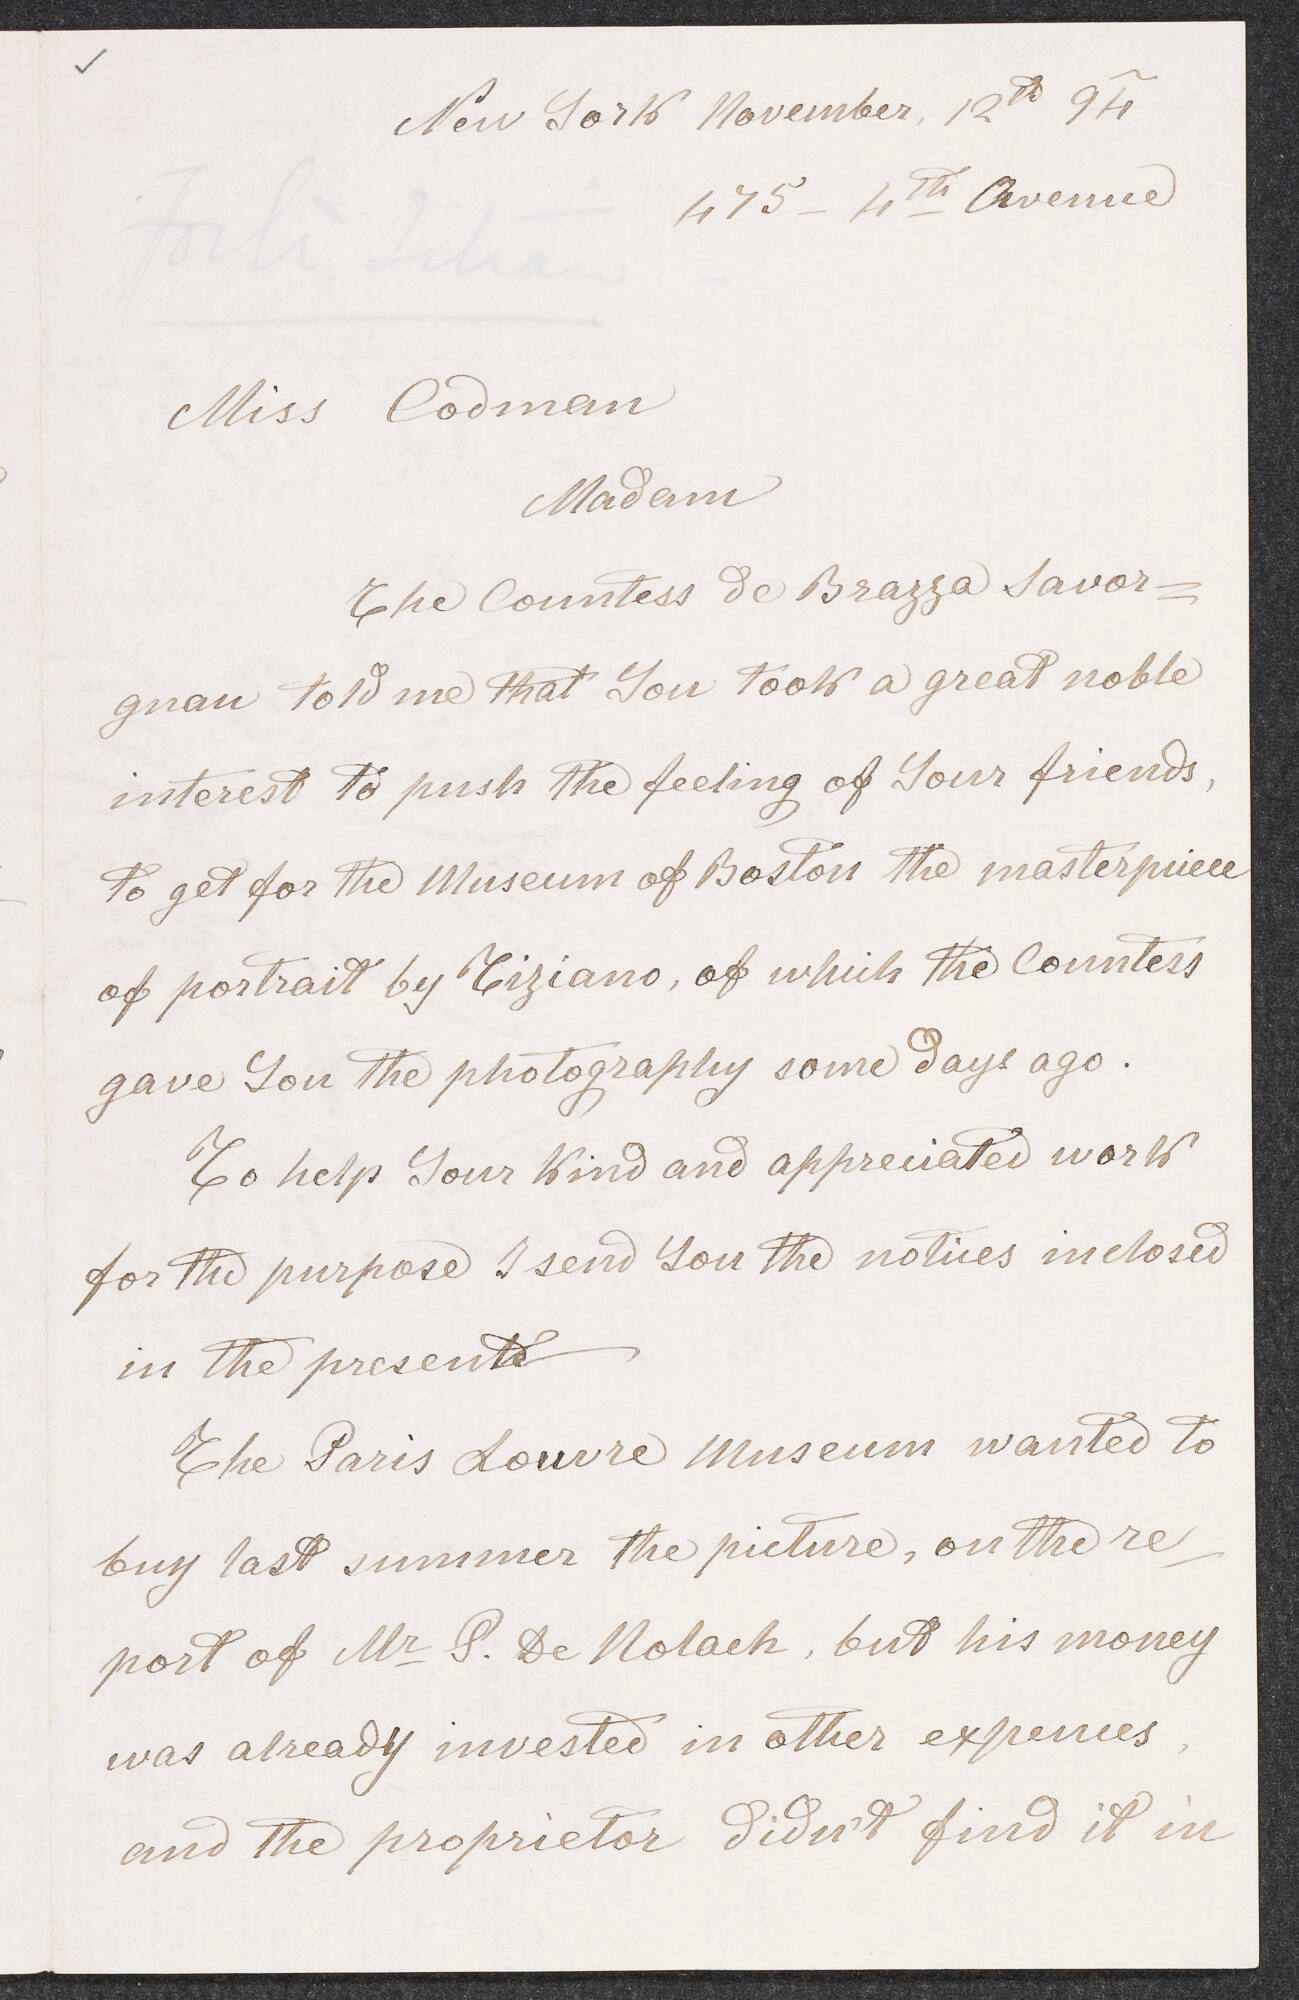 New York November, 12th 94
475 - 4th Avenue
Miss Codman
Madam
The Countess de Brazza Savor=
gnan told me that You took a great noble
interest to push the feeling of Your friends,
to get for the Museum of Boston the masterpiece
of portrait by Tiziano, of which the Countess
gave You the photography some days ago.
To help Your kind and appreciated work
for the purpose I send You the notices inclosed
in the present
The Paris Louvre Museum wanted to
buy last summer the picture, on the re-
port of Mr P. De Nolach, but his money
was already invested in other expences,
and the proprietor didn't find it in